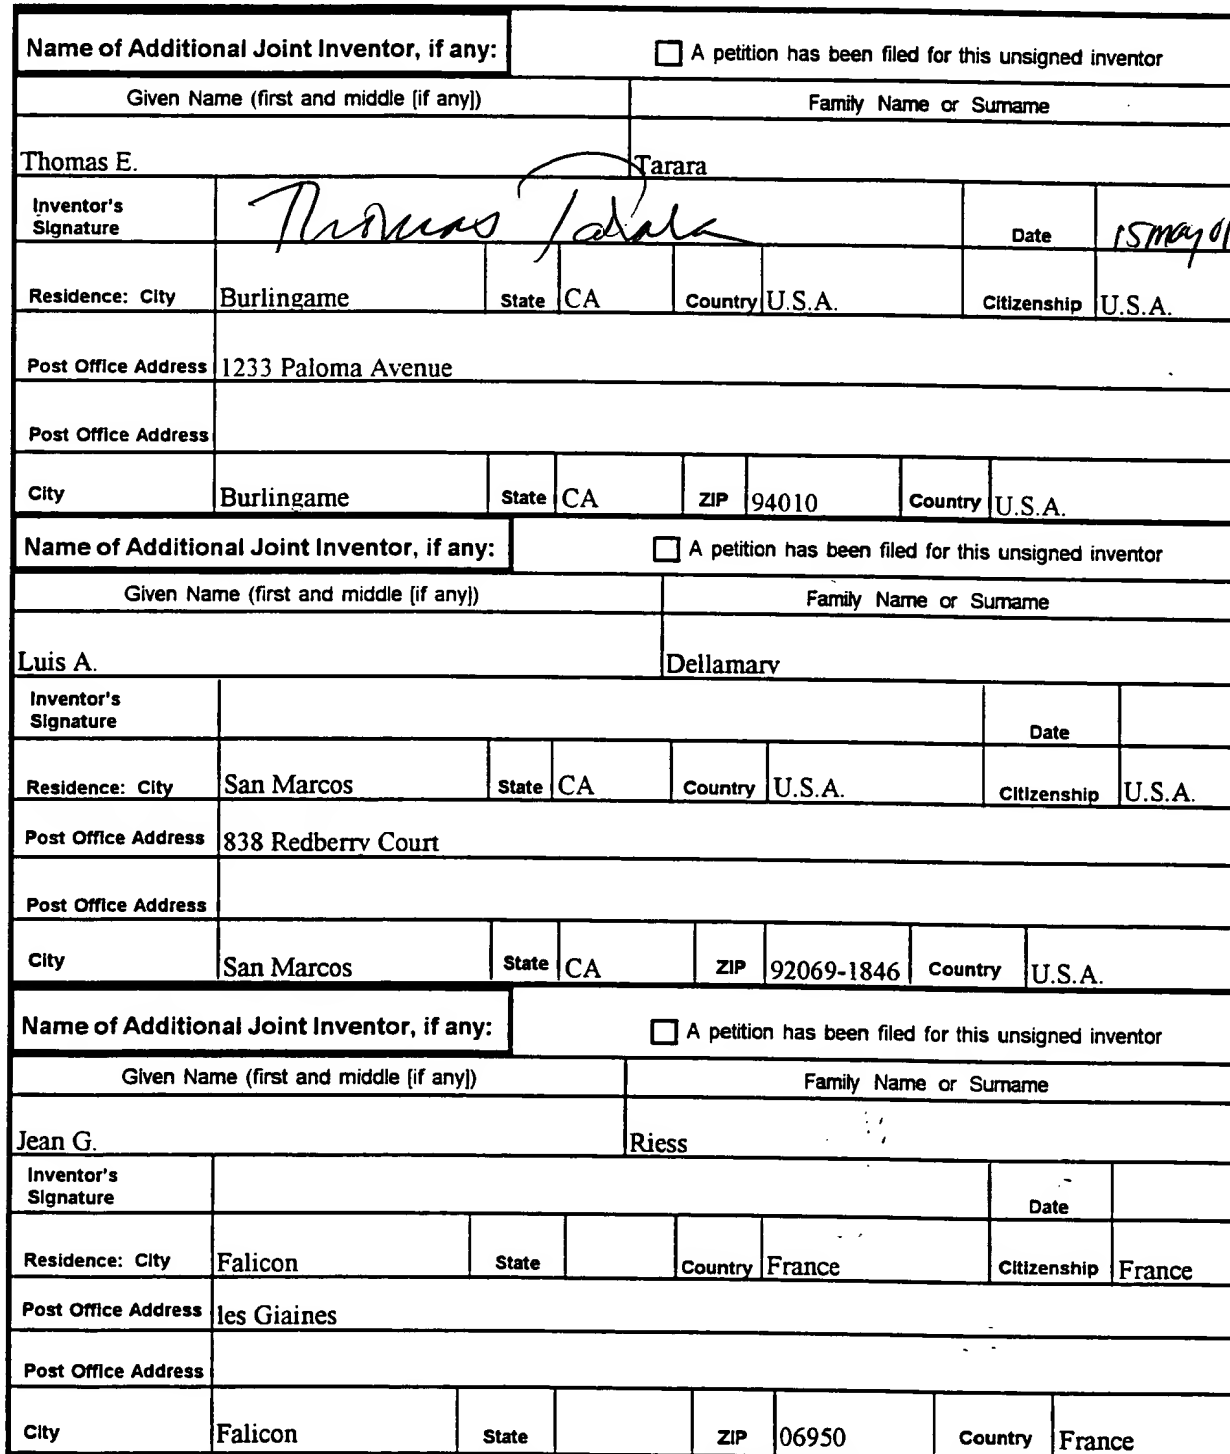 Name of Additional Joint Inventor, if any: ☐ A petition has been filed for this unsigned inventor
Given Name (first and middle [if any]) Family Name or Surname
Thomas E. Tarara
Inventor's Signature Thomas Tarara Date 15 May 01
Residence: City Burlingame State CA Country U.S.A. Citizenship U.S.A.
Post Office Address 1233 Paloma Avenue
Post Office Address
City Burlingame State CA ZIP 94010 Country U.S.A.
Name of Additional Joint Inventor, if any: ☐ A petition has been filed for this unsigned inventor
Given Name (first and middle [if any]) Family Name or Surname
Luis A. Dellamary
Inventor's Signature Date
Residence: City San Marcos State CA Country U.S.A. Citizenship U.S.A.
Post Office Address 838 Redberry Court
Post Office Address
City San Marcos State CA ZIP 92069-1846 Country U.S.A.
Name of Additional Joint Inventor, if any: ☐ A petition has been filed for this unsigned inventor
Given Name (first and middle [if any]) Family Name or Surname
Jean G. Riess
Inventor's Signature Date
Residence: City Falicon State Country France Citizenship France
Post Office Address les Giaines
Post Office Address
City Falicon State ZIP 06950 Country France